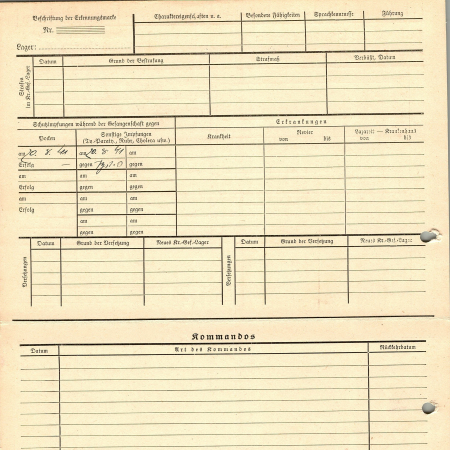 Beschriftung der Erkennungsmarke
Nr.
Lager:
Charaktereigenschaften u. a.
Besondere Fähigkeiten
Sprachkenntnisse
Führung
Strafen im Kr.-Gef.-Lager
Datum
Grund der Bestrafung
Strafmaß
Verbüßt, Datum
Schutzimpfungen während der Gefangenschaft gegen
Erkrankungen
Pocken
Sonstige Impfungen
(Ty.-Paraty., Ruhr, Cholera usw.)
Krankheit
Revier
von bis
Lazarett — Krankenhaus
von bis
am 20. 8. 41 am 20. 8. 41 am
Erfolg — gegen gegen
am am am
Erfolg gegen gegen
am am am
Erfolg gegen gegen
am am
gegen gegen
Versetzungen
Datum
Grund der Versetzung
Neues Kr.-Gef.-Lager
Versetzungen
Datum
Grund der Versetzung
Neues Kr.-Gef.-Lager
Kommandos
Datum
Art des Kommandos
Rückkehrdatum